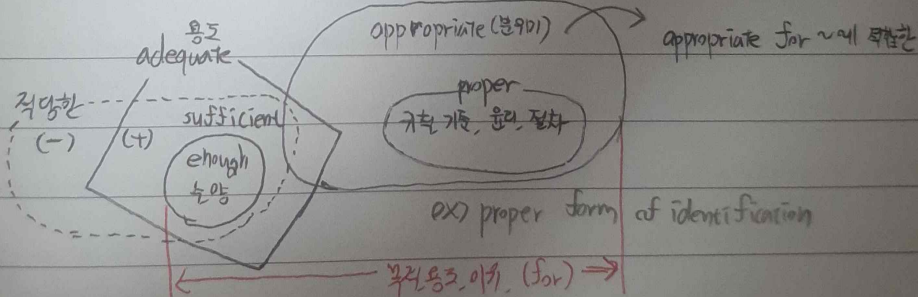 용도
adequate
appropriate (분위기)
appropriate for ~에 적합한
적당한
(-) (+)
sufficient
enough
수양
proper
규칙, 기준, 윤리, 절차
ex) proper form of identification
목적, 용도, 이유, (for)